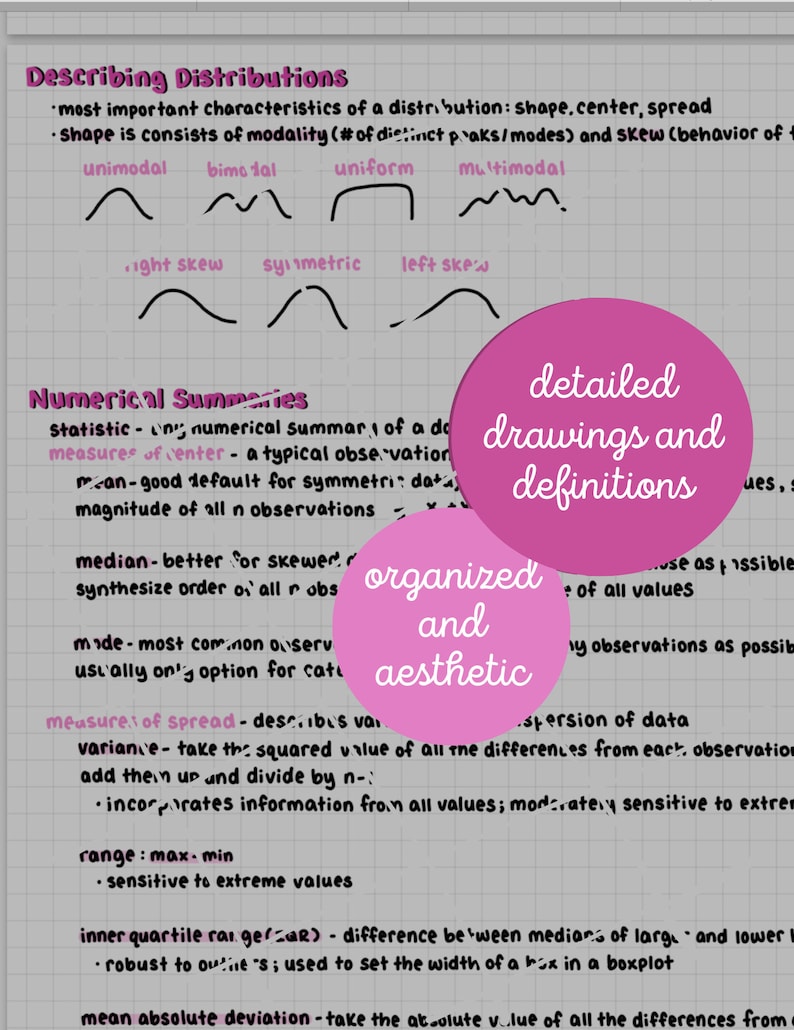 Describing Distributions
· most important characteristics of a distribution: shape, center, spread
· shape is consists of modality (# of distinct peaks/modes) and skew (behavior of
unimodal bimodal uniform multimodal
right skew symmetric left skew
Numerical Summaries
statistic - any numerical summary of a
measures of center - a typical observation
mean - good default for symmetric data
magnitude of all n observations
median - better for skewed as possible
synthesize order of all n of all values
mode - most common observations as possib
usually only option for
measures of spread - describes dispersion of data
variance - take the squared value of all the differences from each observation
add them up and divide by n-
· incorporates information from all values; moderately sensitive to extrem
range: max - min
· sensitive to extreme values
inner quartile range (IQR) - difference between medians of larger and lower
· robust to outliers; used to set the width of a box in a boxplot
mean absolute deviation - take the absolute value of all the differences from
detailed
drawings and
definitions
organized
and
aesthetic